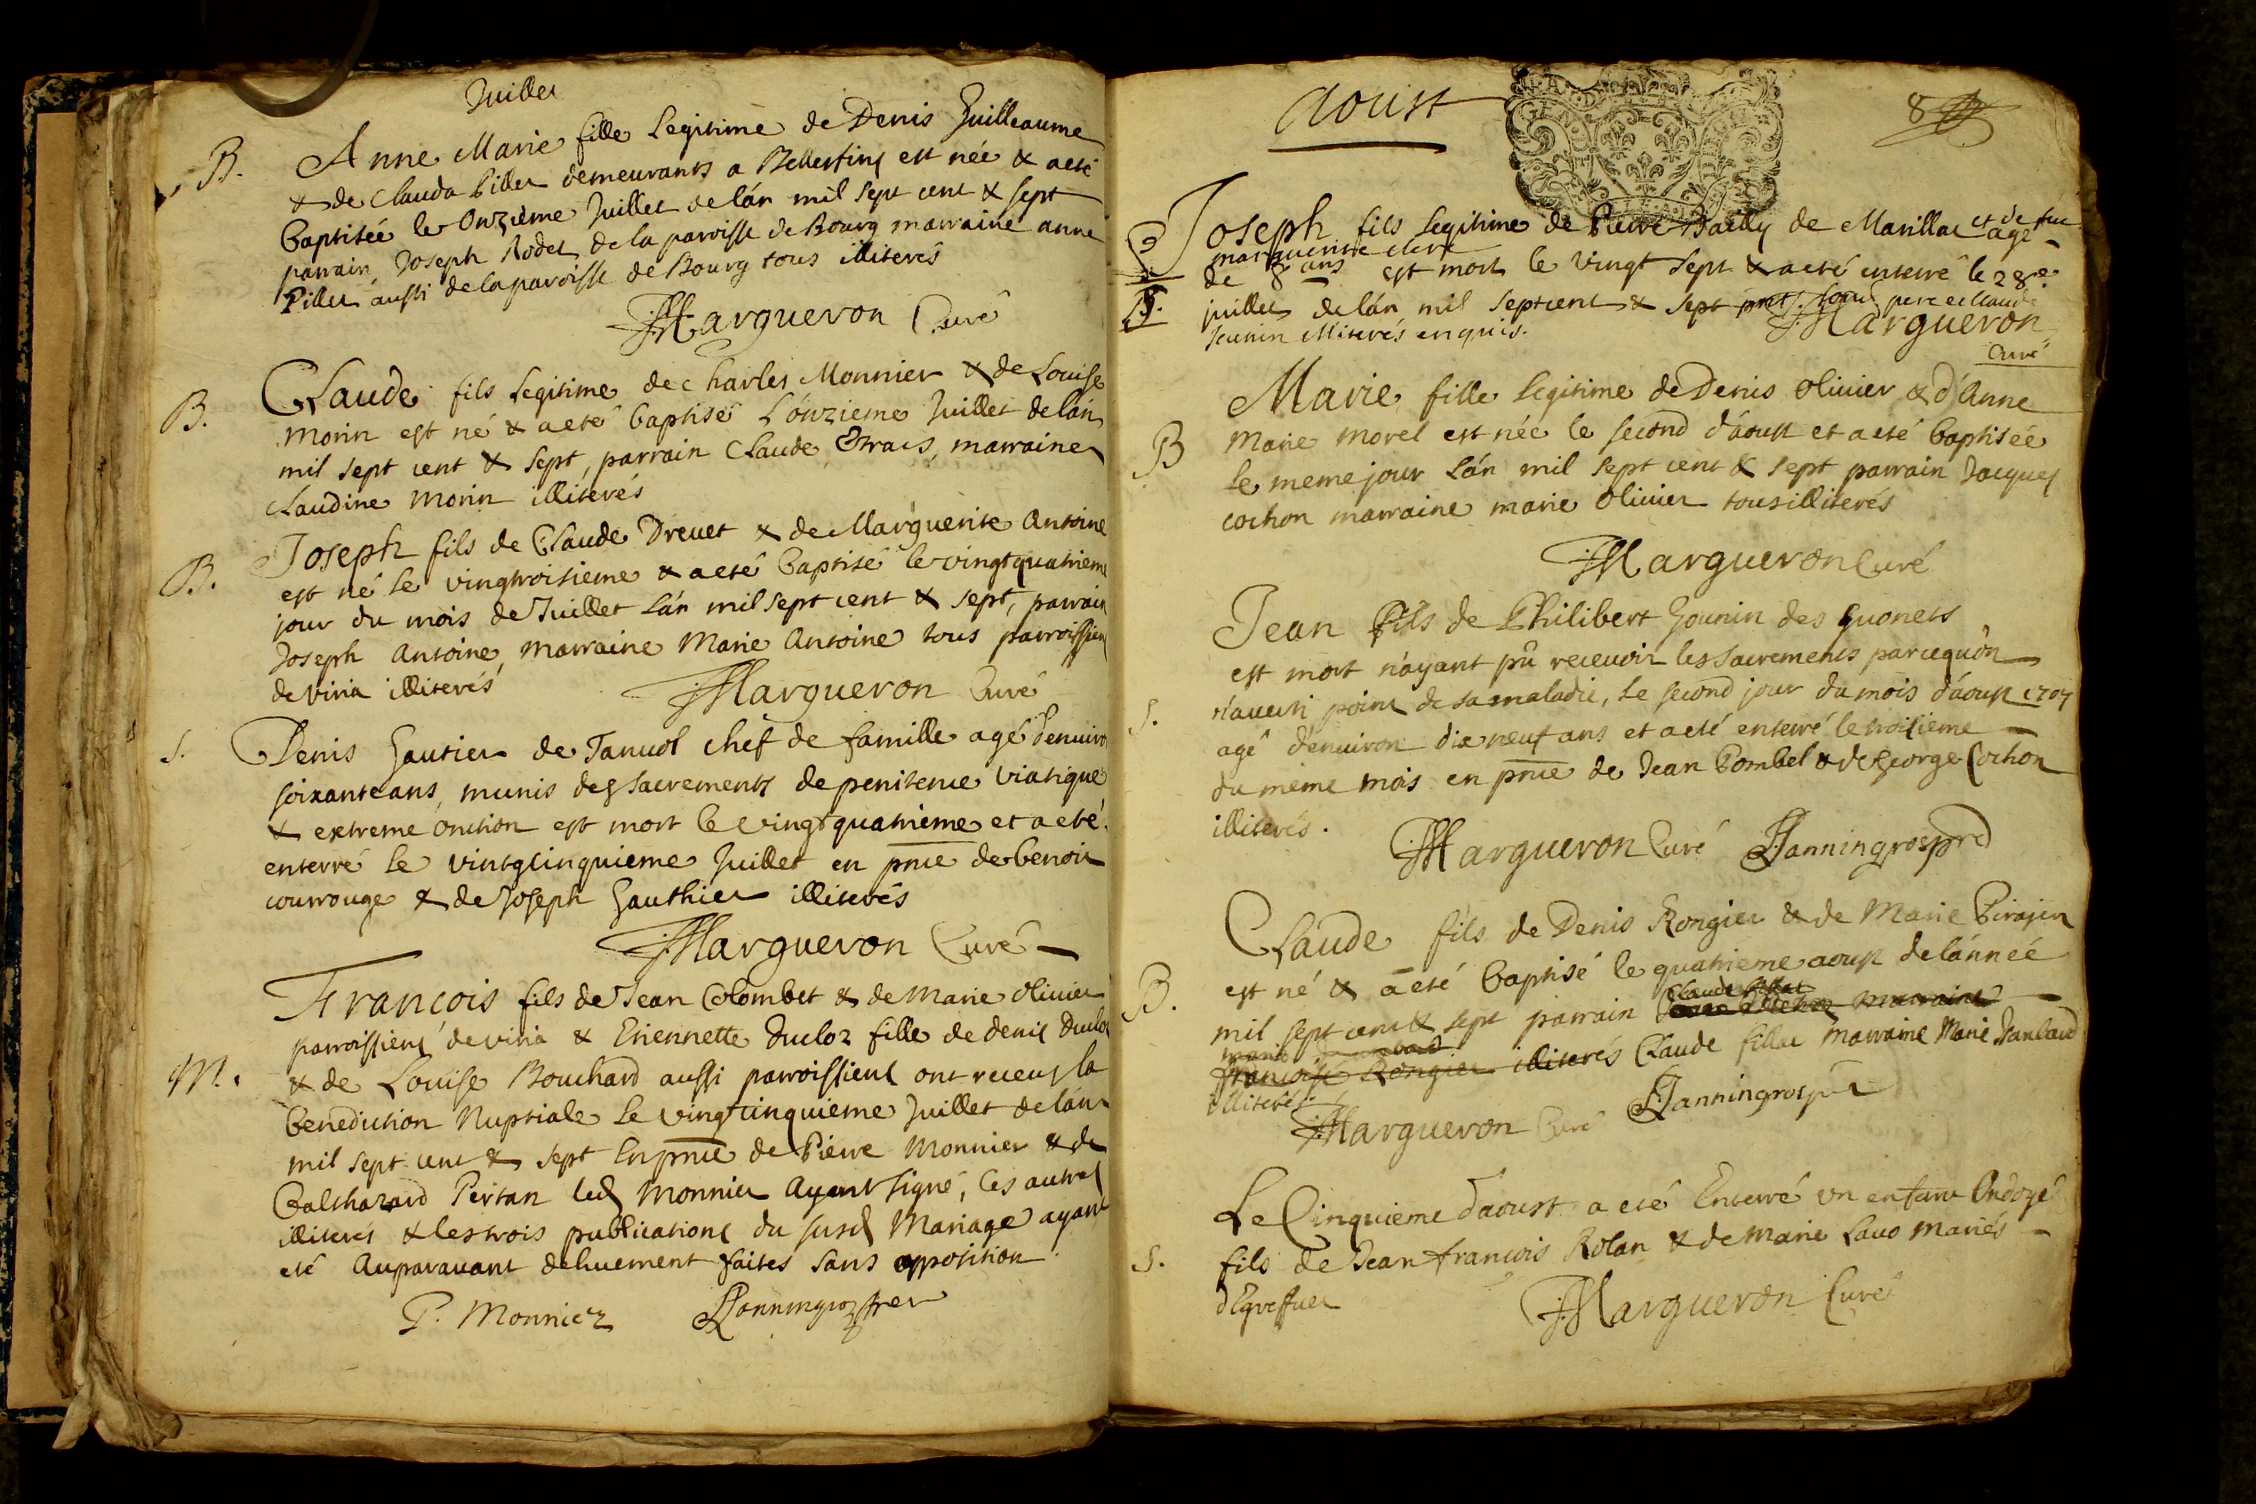 Juillet
B. Anne Marie fille Legitime de Denis Guilleaume
& de Clauda Pillet demeurants a Bellesfins est née & a eté
baptisée le Onzieme Juillet de lán mil sept cent & sept
parrain Joseph Rodet de la paroisse de Bourg marraine anne
Pillet aussi de la paroisse de Bourg tous illiterés
Margueron Curé
B. Claude fils Legitime de Charles Monnier & de Louise
Morin est né & a eté baptisé L'onzieme Juillet de lán
mil sept cent & sept, parrain Claude marraine
Claudine Morin illiterés
B. Joseph fils de Claude Drevet & de Marguerite Antoine
est né le vingtroisieme & a eté baptisé le vingtquatrieme
jour du mois de Juillet Lán mil sept cent & sept, parrain
Joseph Antoine, marraine Marie Antoine tous parroissiens
de viria illiterés
Margueron Curé
S. Denis Gautier de Tanvol chef de famille agé denviron
soixante ans, munis des sacrements de penitence viatique
& extreme onction est mort le vingtquatrieme et a eté
enterré le vintgcinquieme Juillet en pnce de benoit
courrouge & de Joseph Gauthier illiterés
Margueron Curé
M. Francois fils de Jean Colombet & de Marie Olivier
parroissiens de viria & Etiennette Ducloz fille de denis Ducloz
& de Louise Bouchard aussi parroissiens ont receus la
benediction Nuptiale le vingtcinquieme Juillet de lán
mil sept cent & sept En pnce de Pierre Monnier & de
Balthazard Pertan led Monnier ayant signé, les autres
illiterés & les trois publications du susd Mariage ayant
eté Auparavant dehuement faites sans opposition
P. Monnier Janningros
Aoust
8
Joseph fils legitime de Pierre Bailly de Marillac et de fue
marguerite clerc agé
de 8 ans est mort le vingt sept & a eté enterré le 28e
S. juillet de lán mil sept cent & sept pere et Claude
Jeunin illiterés enquis.
Margueron
Curé
B Marie fille legitime de Denis Olivier & d'Anne
Marie Morel est née le second d'áoust et a eté baptisée
le meme jour Lán mil sept cent & sept parrain Jacques
cochon marraine marie Olivier tous illiterés
Margueron Curé
Jean fils de Philibert Gounin des Guonets
est mort n'ayant pû recevoir les sacrements parcequôn
S. n'averti point de sa maladie, le second jour du mois d'áoust 1707
agé d'environ dix neuf ans et a eté enterré le troisieme
du meme mois en pnce de Jean Pombel & de George Cochon
illiterés.
Margueron Curé Janningros prd
Claude fils de Denis Rongier & de Marie
B. est né & a eté baptisé le quatrieme aoust de lánneé
mil sept cent & sept parrain marraine
francoise Rongier illiterés Claude fillat marraine Marie
illiterés
Margueron Curé Janningros
Le Cinquieme d'aoust a eté Enterré un enfant Ondoyé
S. fils de Jean francois Rolan & de Marie Lavo Mariés
d'Egreffuet
Margueron Curé